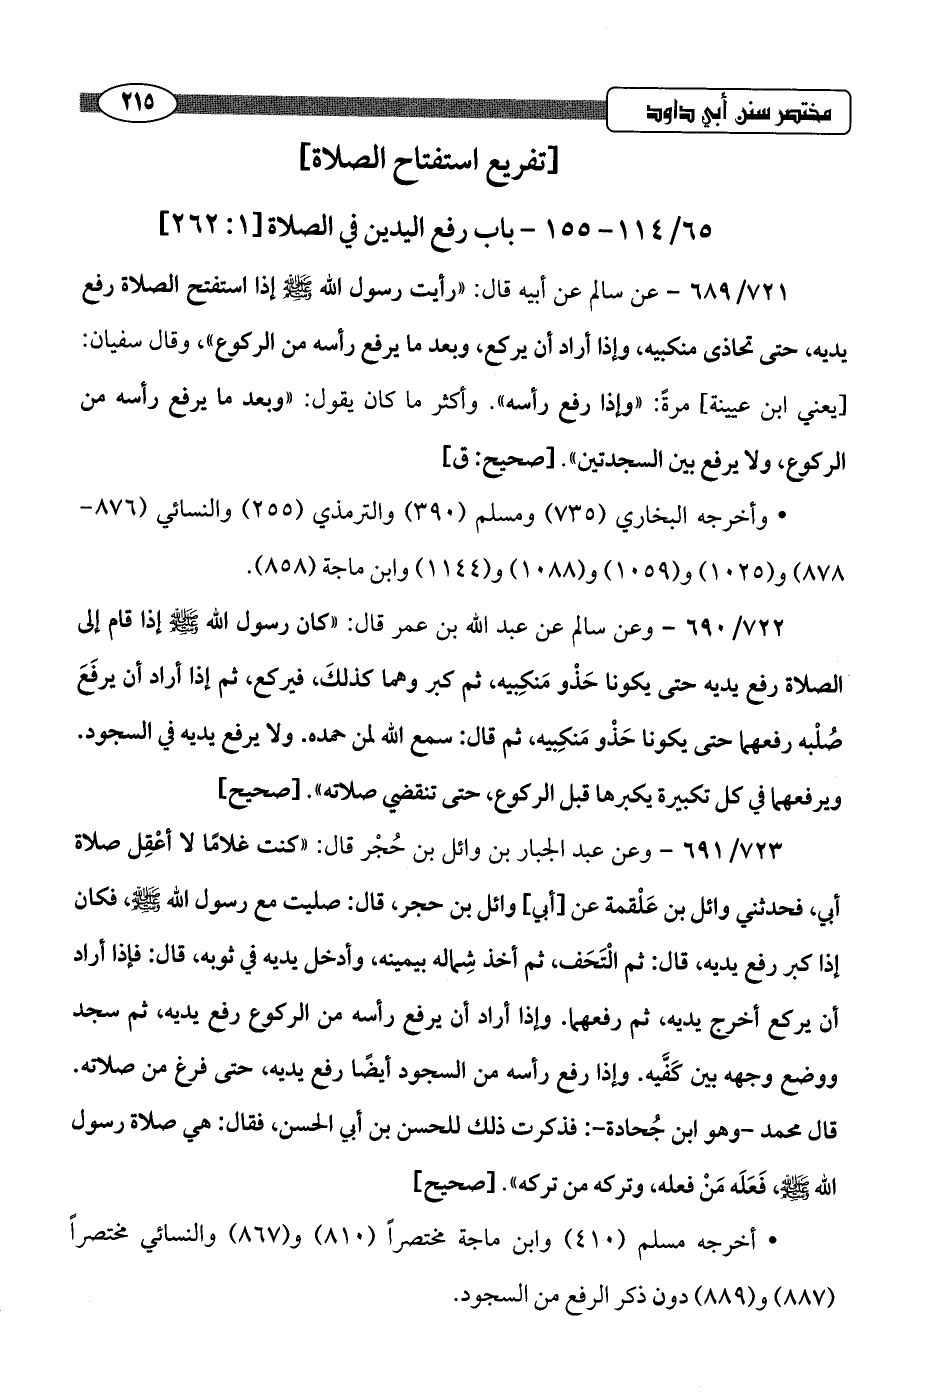 مختصر سنن أبي داود ٢١٥
[تفريع استفتاح الصلاة]
١١٤/٦٥- ١٥٥ - باب رفع اليدين في الصلاة [١: ٢٦٢]
٦٨٩/٧٢١ - عن سالم عن أبيه قال: «رأيت رسول الله ﷺ إذا استفتح الصلاة رفع
يديه، حتى تحاذى منكبيه، وإذا أراد أن يركع، وبعد ما يرفع رأسه من الركوع»، وقال سفيان:
[يعني ابن عيينة] مرةً: «وإذا رفع رأسه». وأكثر ما كان يقول: «وبعد ما يرفع رأسه من
الركوع، ولا يرفع بين السجدتين». [صحيح: ق]
• وأخرجه البخاري (٧٣٥) ومسلم (٣٩٠) والترمذي (٢٥٥) والنسائي (٨٧٦-
٨٧٨) و(١٠٢٥) و(١٠٥٩) و(١٠٨٨) و(١١٤٤) وابن ماجة (٨٥٨).
٦٩٠/٧٢٢ - وعن سالم عن عبد الله بن عمر قال: «كان رسول الله ﷺ إذا قام إلى
الصلاة رفع يديه حتى يكونا حَذْو مَنكِبيه، ثم كبر وهما كذلكَ، فيركع، ثم إذا أراد أن يرفَعَ
صُلْبه رفعهما حتى يكونا حَذْو مَنكِبيه، ثم قال: سمع الله لمن حمده. ولا يرفع يديه في السجود.
ويرفعهما في كل تكبيرة يكبرها قبل الركوع، حتى تنقضي صلاته». [صحيح]
٦٩١/٧٢٣ - وعن عبد الجبار بن وائل بن حُجْر قال: «كنت غلامًا لا أعْقِل صلاة
أبي، فحدثني وائل بن عَلْقمة عن [أبي] وائل بن حجر، قال: صليت مع رسول الله ﷺ، فكان
إذا كبر رفع يديه، قال: ثم الْتَحَف، ثم أخذ شِماله بيمينه، وأدخل يديه في ثوبه، قال: فإذا أراد
أن يركع أخرج يديه، ثم رفعهما. وإذا أراد أن يرفع رأسه من الركوع رفع يديه، ثم سجد
ووضع وجهه بين كَفَّيه. وإذا رفع رأسه من السجود أيضًا رفع يديه، حتى فرغ من صلاته.
قال محمد -وهو ابن جُحادة-: فذكرت ذلك للحسن بن أبي الحسن، فقال: هي صلاة رسول
الله ﷺ، فَعَلَه مَنْ فعله، وتركه من تركه». [صحيح]
• أخرجه مسلم (٤١٠) وابن ماجة مختصراً (٨١٠) و(٨٦٧) والنسائي مختصراً
(٨٨٧) و(٨٨٩) دون ذكر الرفع من السجود.